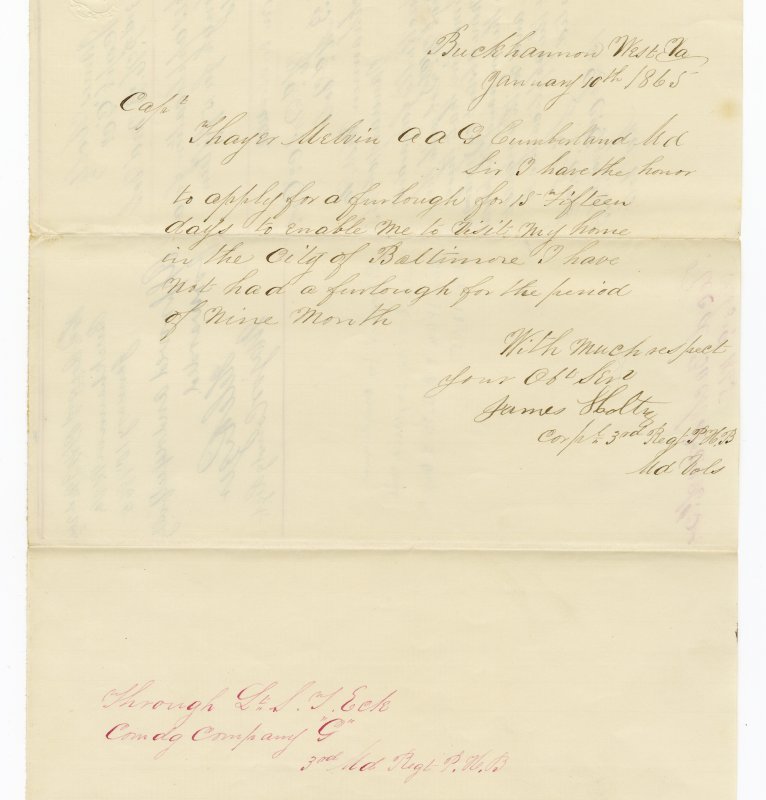 Buckhannon West Va
January 10th 1865
Capt
Thayer Melvin A A G Cumberland Md
Sir I have the honor
to apply for a furlough for 15 Fifteen
days to enable me to visit my home
in the City of Baltimore I have
not had a furlough for the period
of Nine Month
With much respect
your Obt Servt
James Holtz
Corpl 3rd Regt P.H.B
Md Vols
Through Lt. S. T. Eck
Comdg Company "G"
3rd Md Regt P. H. B